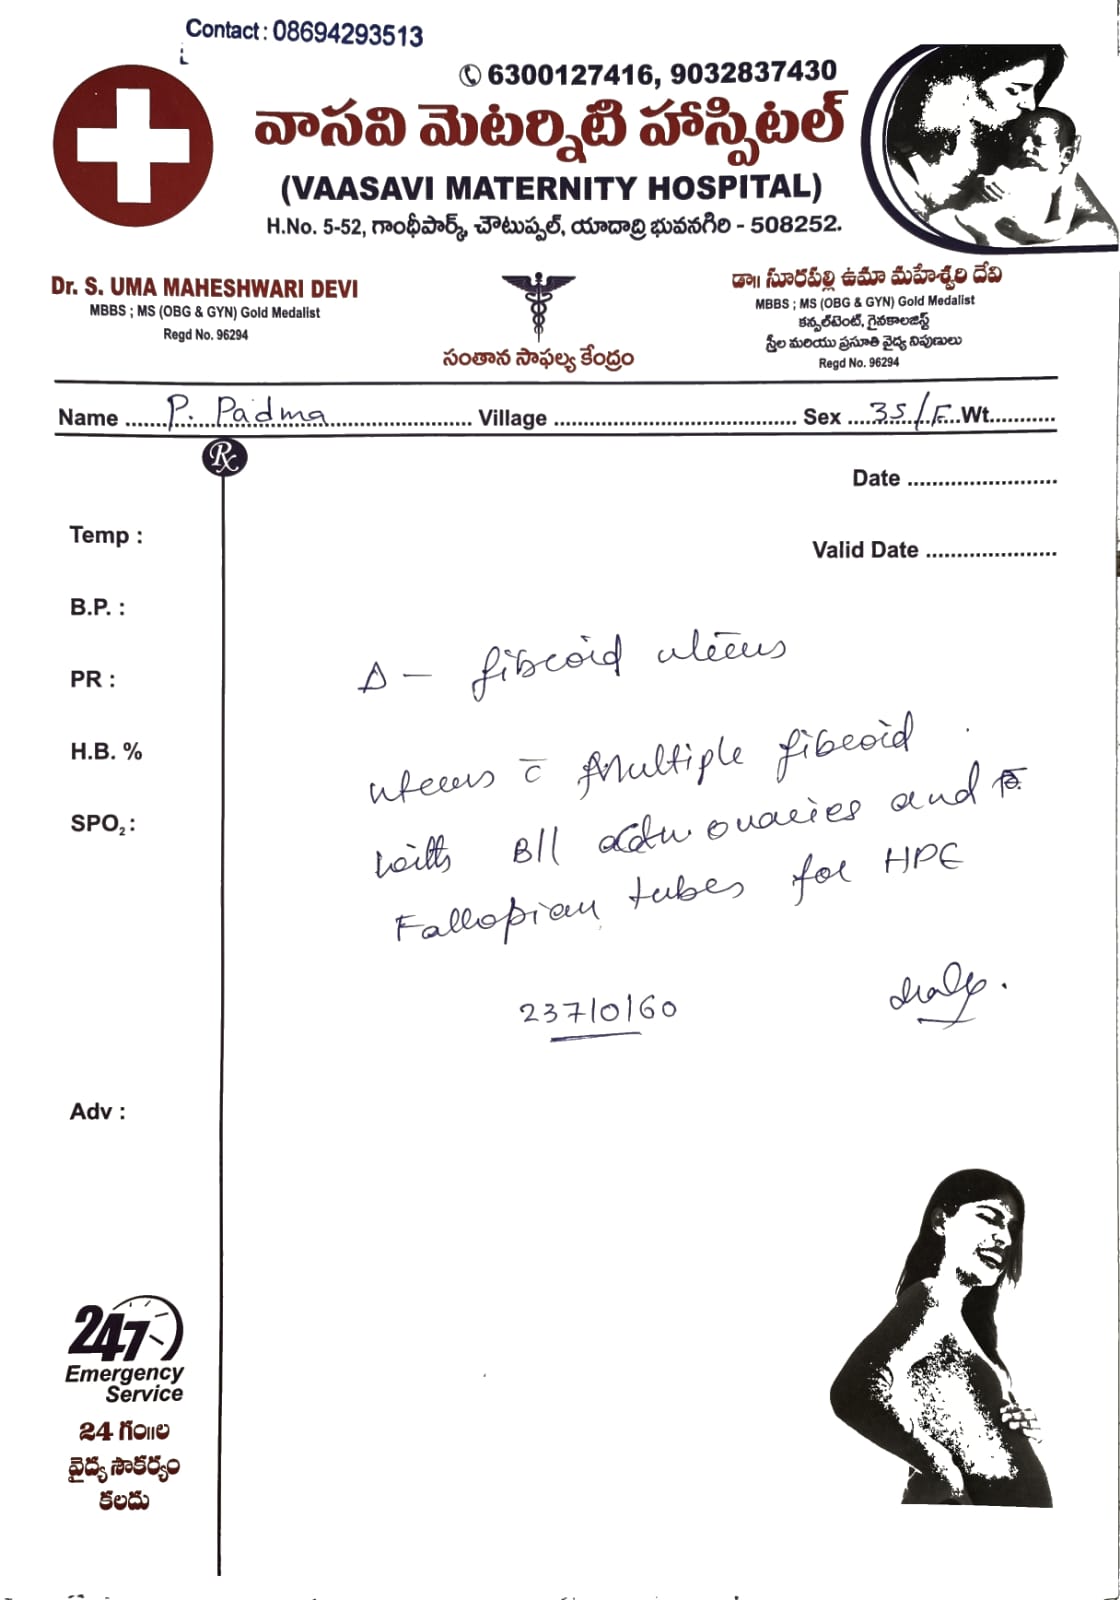 Contact : 08694293513
6300127416, 9032837430
వాసవి మెటర్నిటి హాస్పిటల్
(VAASAVI MATERNITY HOSPITAL)
H.No. 5-52, గాంధీపార్క్, చౌటుప్పల్, యాదాద్రి భువనగిరి - 508252.
Dr. S. UMA MAHESHWARI DEVI
MBBS ; MS (OBG & GYN) Gold Medalist
Regd No. 96294
సంతాన సాఫల్య కేంద్రం
డా॥ సూరపల్లి ఉమా మహేశ్వరి దేవి
MBBS ; MS (OBG & GYN) Gold Medalist
కన్సల్టెంట్, గైనకాలజిస్ట్
స్త్రీల మరియు ప్రసూతి వైద్య నిపుణులు
Regd No. 96294
Name ....... P. Padma ....... Village ....... Sex ... 35/F ... Wt...........
Rx
Date ........................
Valid Date .....................
Temp :
B.P. :
PR :
H.B. %
SPO₂ :
Δ - fibroid uterus
uterus c̄ Multiple fibroid
with B/l ovaries and
Fallopian tubes for HPE
237/0/60
Adv :
247
Emergency
Service
24 గం॥ల
వైద్య సౌకర్యం
కలదు